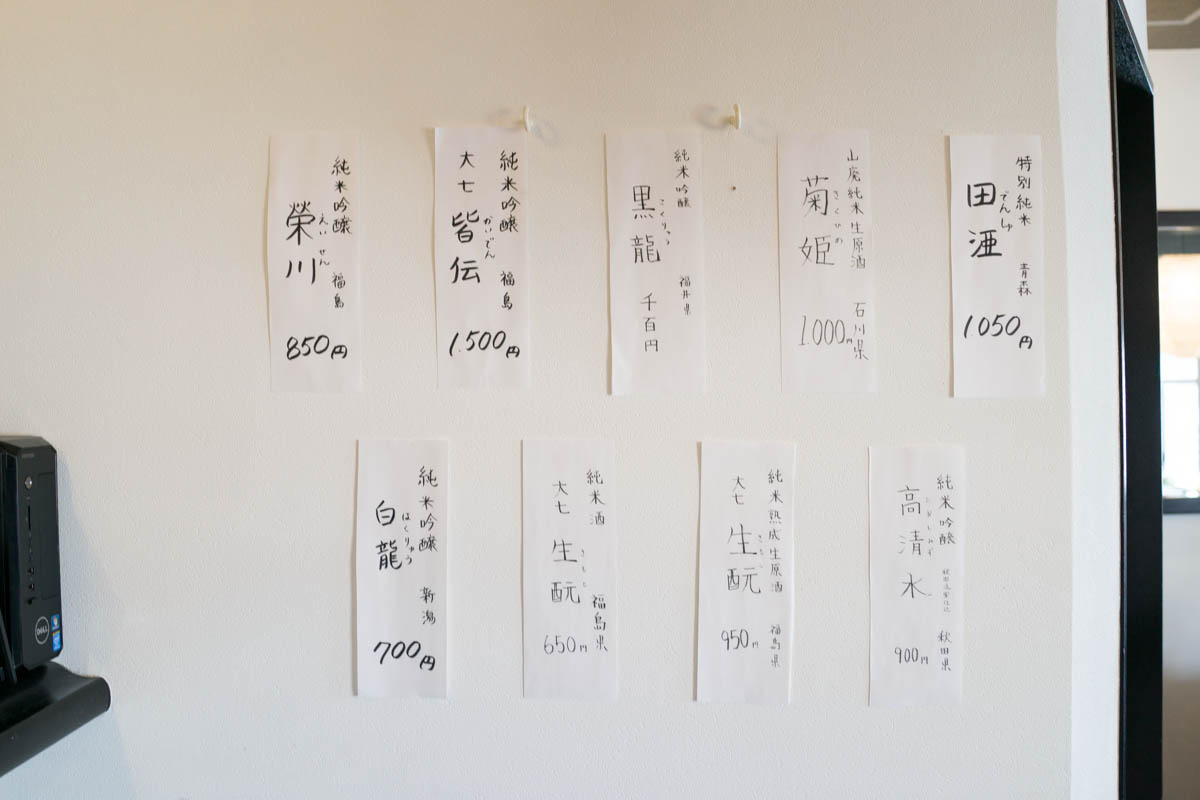 特別純米 青森
田酒
でんしゅ
1050円
山廃純米生原酒 石川県
菊姫
きくひめ
1.000円
純米吟醸 福井県
黒龍
こくりゅう
千百円
純米吟醸 福島
大七 皆伝
かいでん
1.500円
純米吟醸 福島
榮川
えいせん
850円
純米吟醸 秋田県
高清水
たかしみず
900円
純米熟成生原酒 福島県
大七 生酛
きもと
950円
純米酒 福島県
大七 生酛
きもと
650円
純米吟醸 新潟
白龍
はくりゅう
700円
DELL